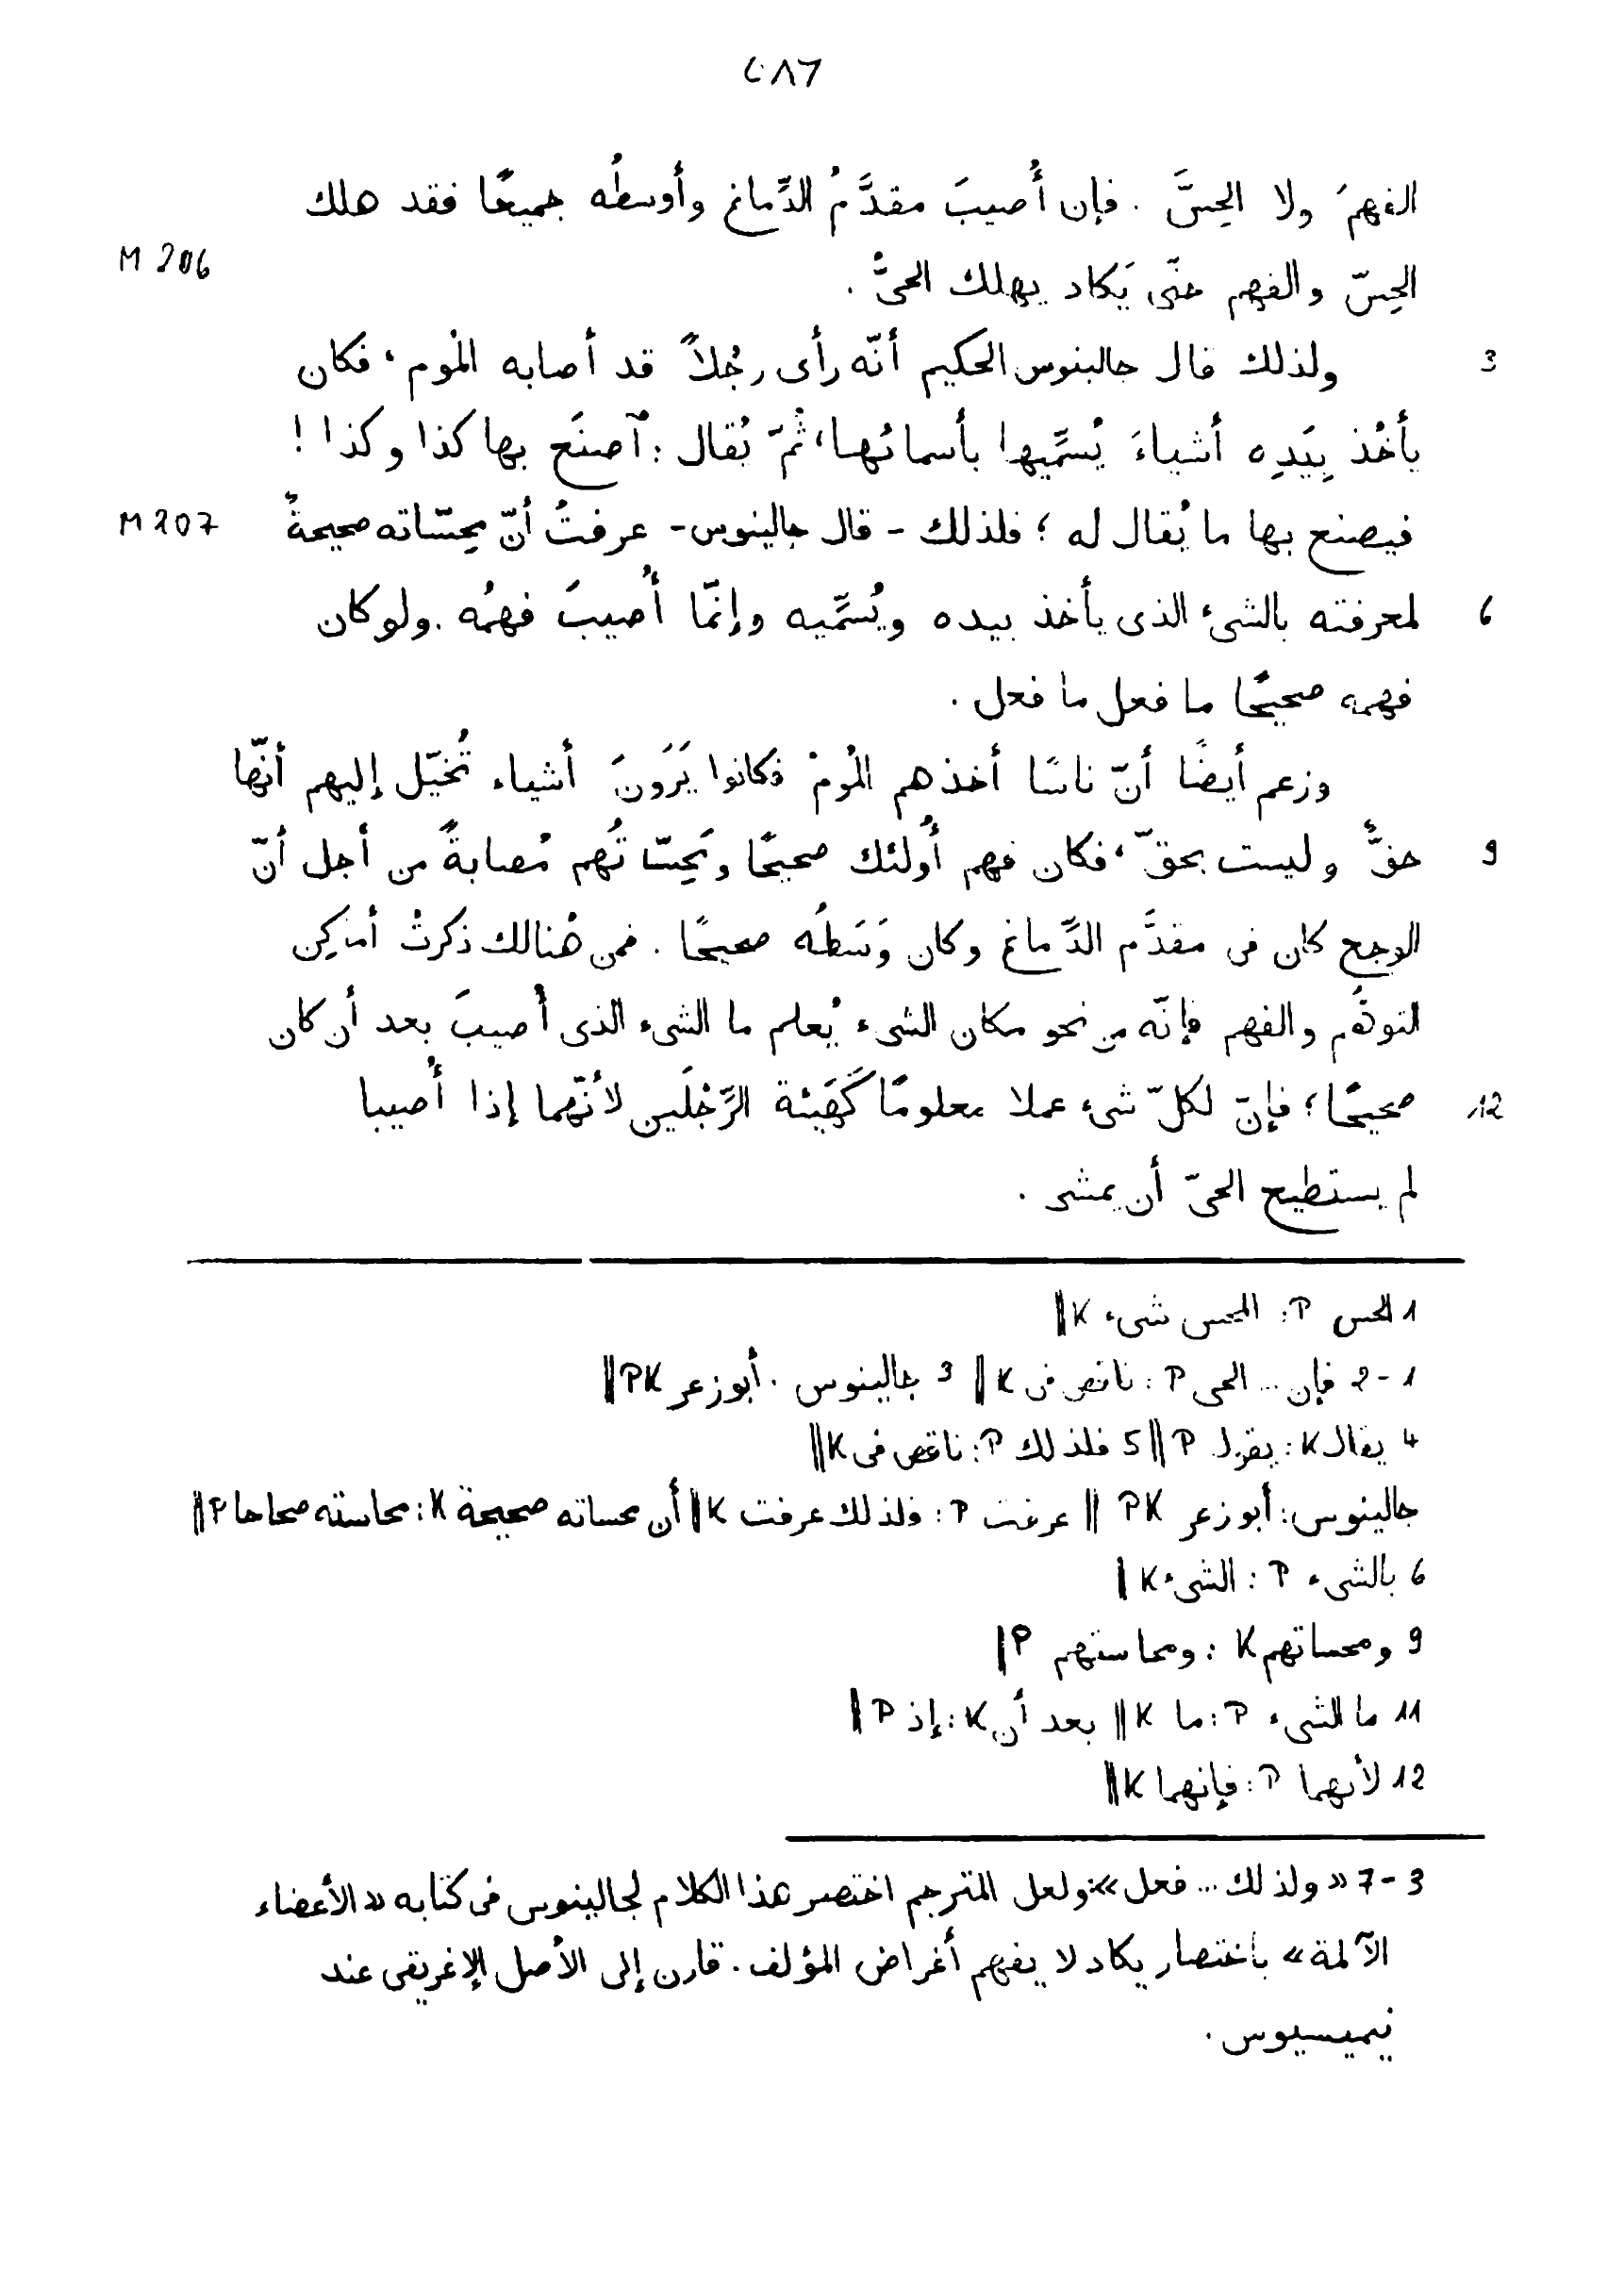 ٢٨٦
الفهمَ ولا الحِسَّ . فإن أُصيبَ مقدَّمُ الدِّماغ وأوسطُه جميعًا فقد هلك
M 206
الحِسّ والفهم حتّى يَكاد يهلك الحىُّ .
3 ولذلك قال جالينوس الحكيم أنّه رأى رجُلاً قد أصابه المُوم، فكان
يأخُذ بِيَدِه أشياءَ يُسَمِّيها بأسمائها، ثُمّ يُقال : آصنَع بها كذا وكذا !
M 207 فيصنع بها ما يُقال له ؛ فلذلك - قال جالينوس - عرفتُ أنّ مِحسّاته صحيحةٌ
6 لمعرفته بالشىء الذى يأخذ بيده ويُسَمِّيه وإنمّا أُصيبَ فهمُه . ولو كان
فهمه صحيحًا ما فعل ما فعل .
وزعم أيضًا أنّ ناسًا أخذهم المُومْ فكانوا يَرَونَ أشياء تُخيّل إليهم أنّها
9 حقٌّ وليست بحقّ، فكان فهم أُولئك صحيحًا ومَحِسّاتُهم مُصابةً من أجل أنّ
الوجع كان فى مقدَّم الدِّماغ وكان وَسَطُه صحيحًا . فمن هُنالك ذكرتُ أماكِن
التوهُّم والفهم فإنّه من نحو مكان الشىء يُعلم ما الشىء الذى أُصيبَ بعد أن كان
12 صحيحًا؛ فإنّ لكلّ شىء عملا معلومًا كَهَيئة الرِّجْلَين لأنّهما إذا أُصيبا
لم يستطيع الحىّ أن يمشى .
1 الحس P: المحس شىء K ||
1-2 فإن ... الحى P : ناقص فى K || 3 جالينوس . أبوزعر PK ||
4 يقال K : يقول P || 5 فلذلك P : ناقص فى K ||
جالينوس: أبو زعر PK || عرفت P : فلذلك عرفت K || أن محساته صحيحة K : محاسته صحاحا P ||
6 بالشىء P : الشىء K ||
9 ومحساتهم K : ومحاستهم P ||
11 ما الشىء P : ما K || بعد أن K : إذ P ||
12 لأنهما P : فإنهما K ||
3-7 «ولذلك ... فعل»: ولعل المترجم اختصر هذا الكلام لجالينوس فى كتابه «الأعضاء
الآلمة» باختصار يكاد لا يفهم أغراض المؤلف . قارن إلى الأصل الإغريقى عند
نيميسيوس .